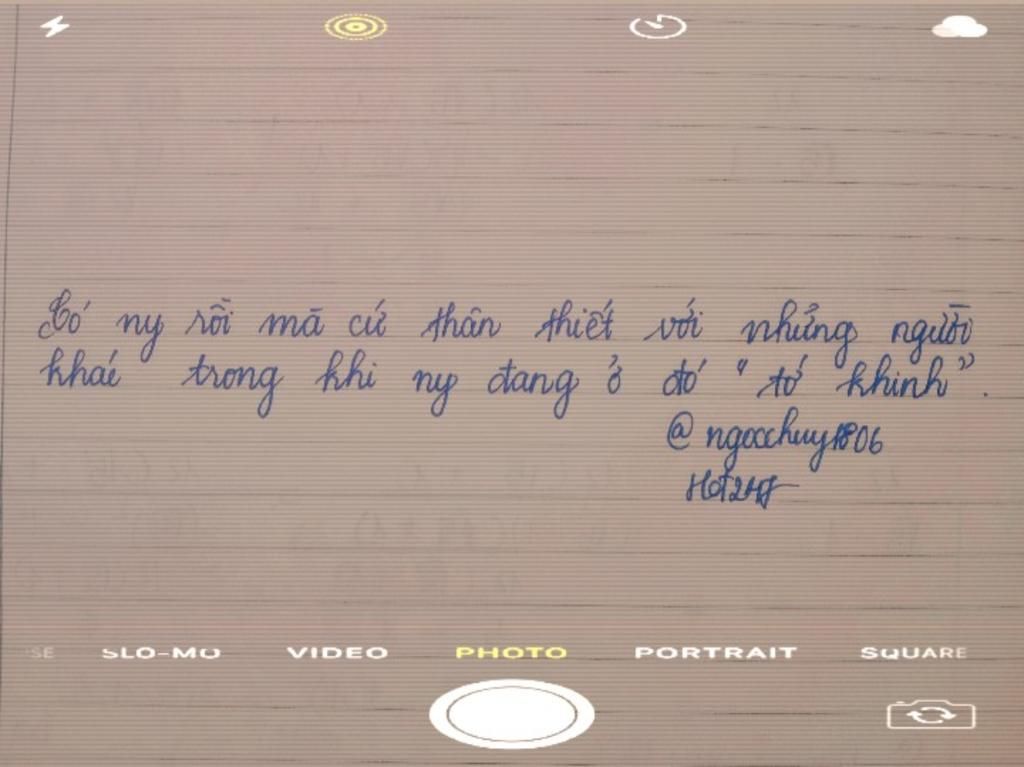 Có ny rồi mà cứ thân thiết với những người
khác trong khi ny đang ở đó " tớ khinh ".
@ ngocchuy1806
Hot24h
SE SLO-MO VIDEO PHOTO PORTRAIT SQUARE